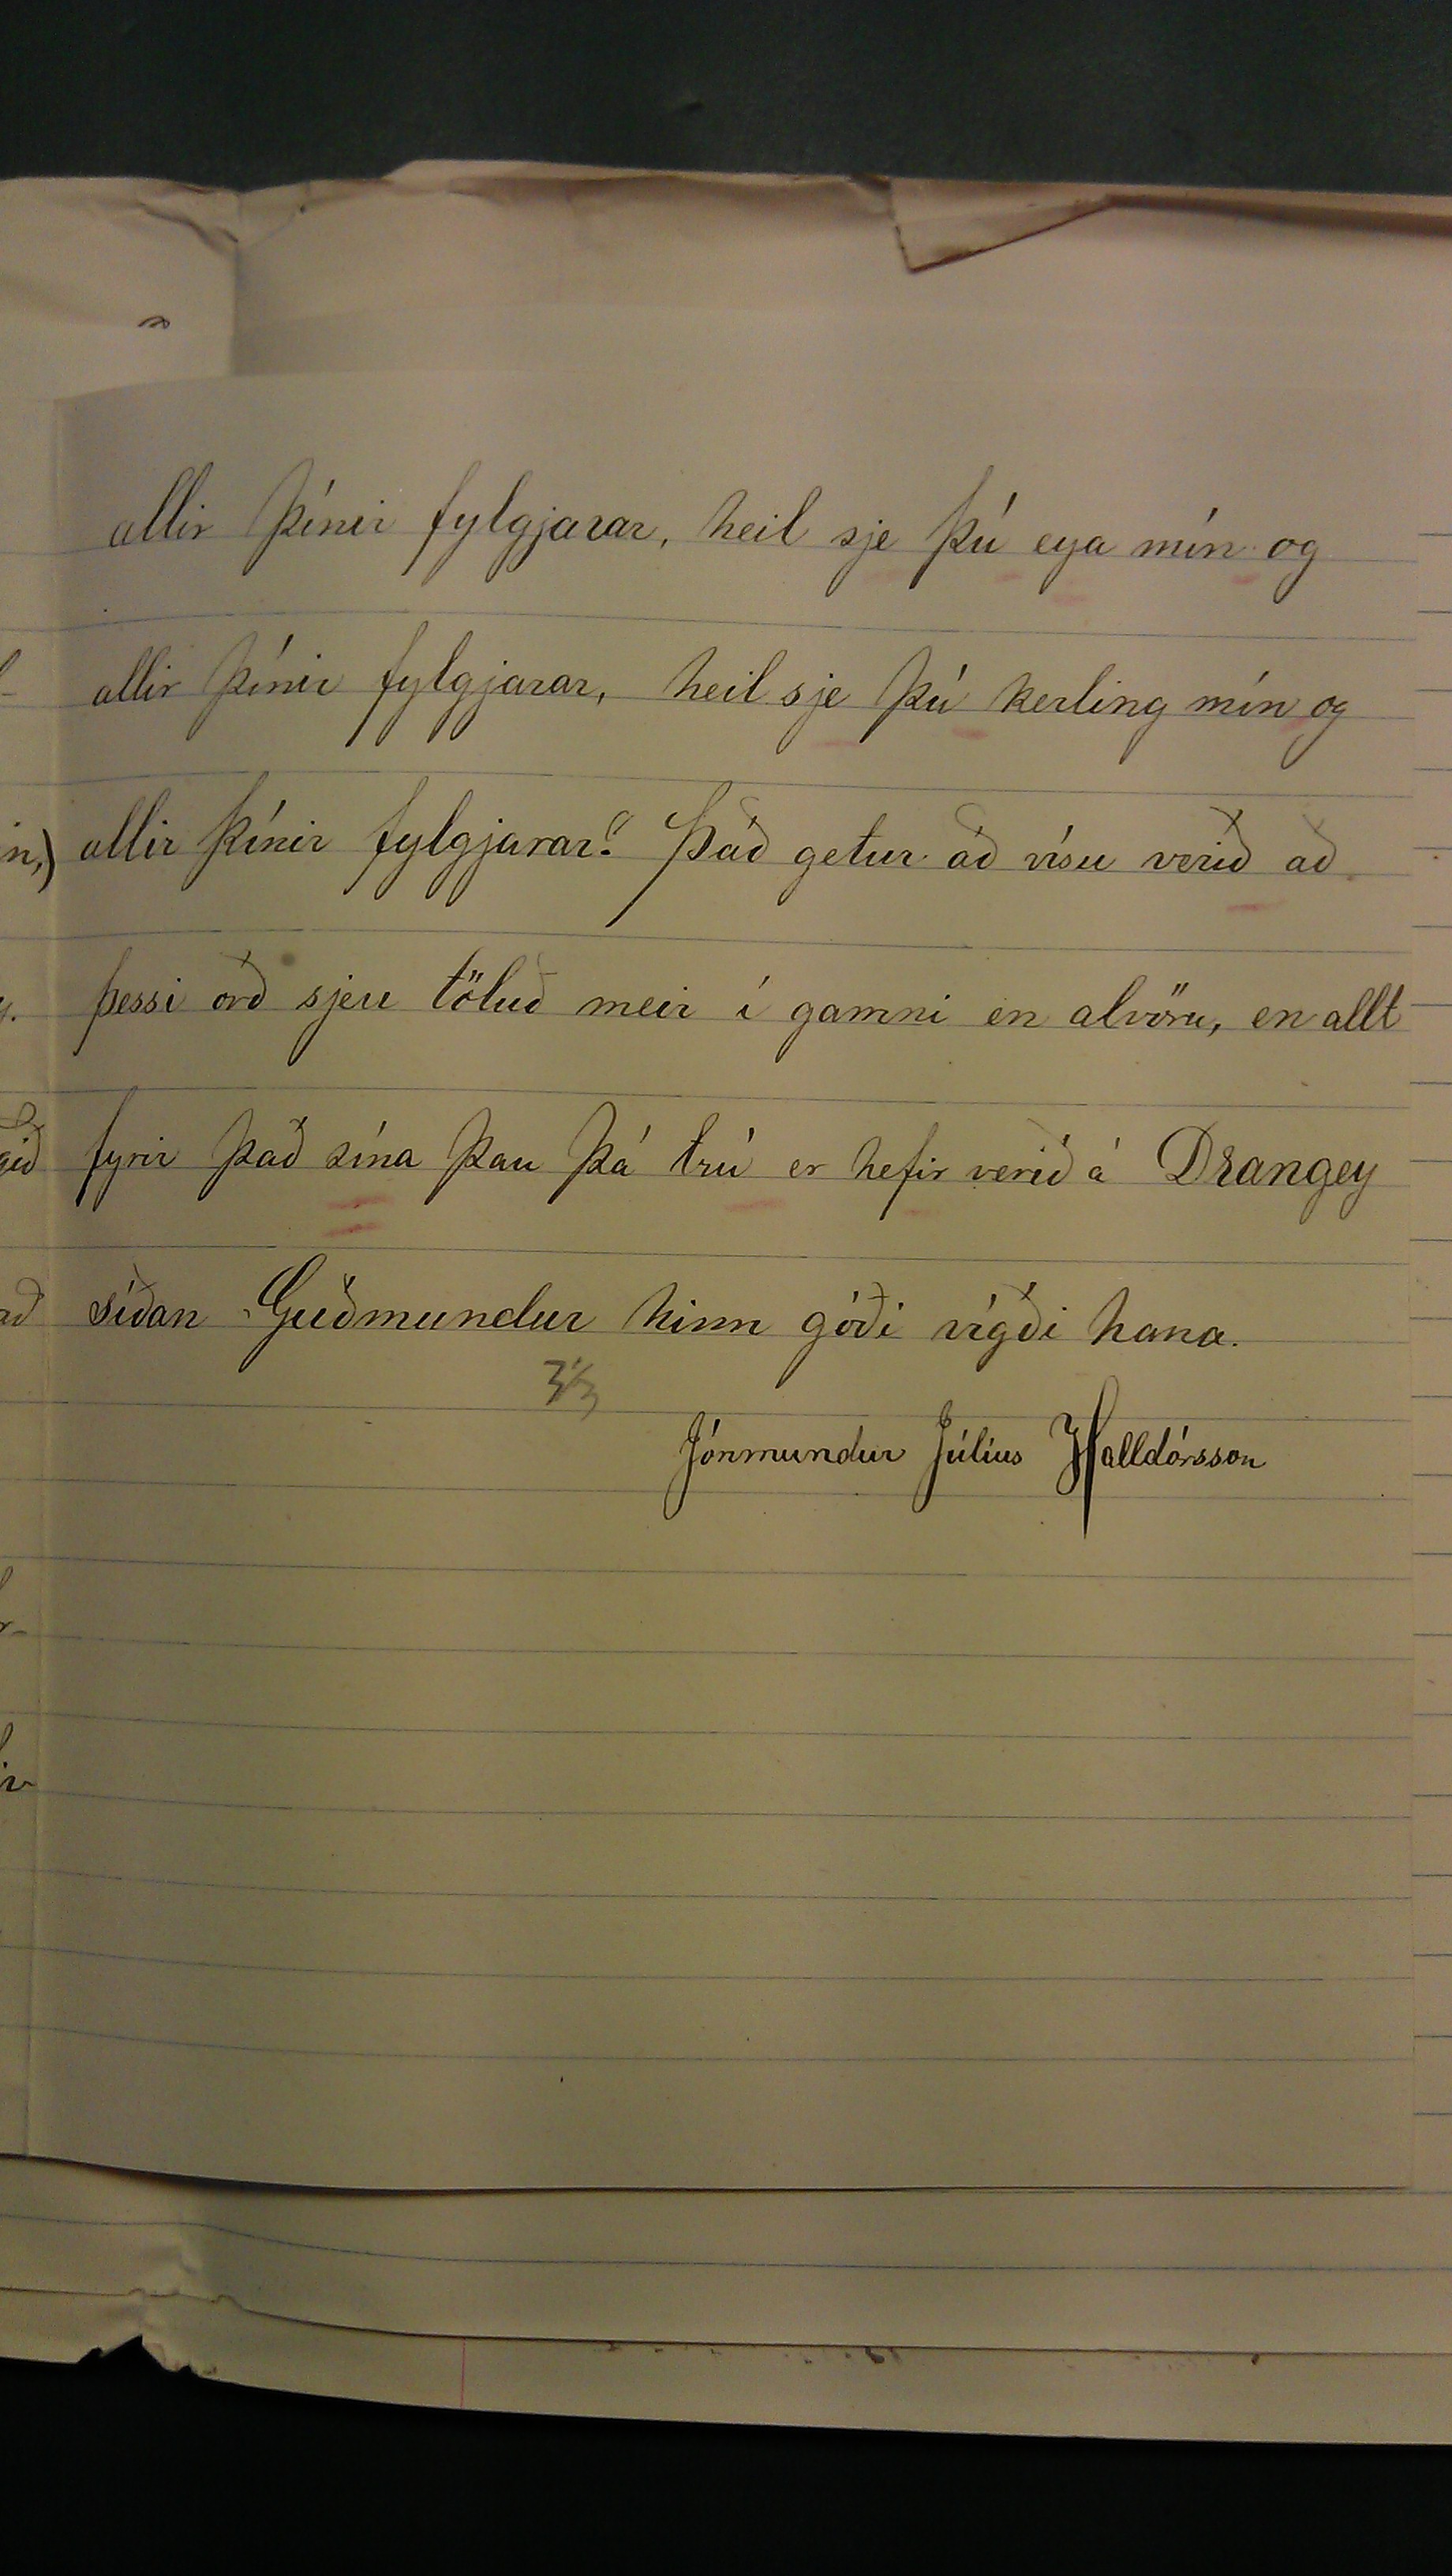 allir þínir fylgjarar, heil sje þú eya mín og
allir þínir fylgjarar, heil sje þú kerling mín og
allir þínir fylgjarar!" Það getur að vísu verið að
þessi orð sjeu töluð meir í gamni en alvöru, en allt
fyrir það sína þau þá trú er hefir verið á Drangey
síðan Guðmundur hinn góði vígði hana.
Jónmundur Júlíus Halldórsson